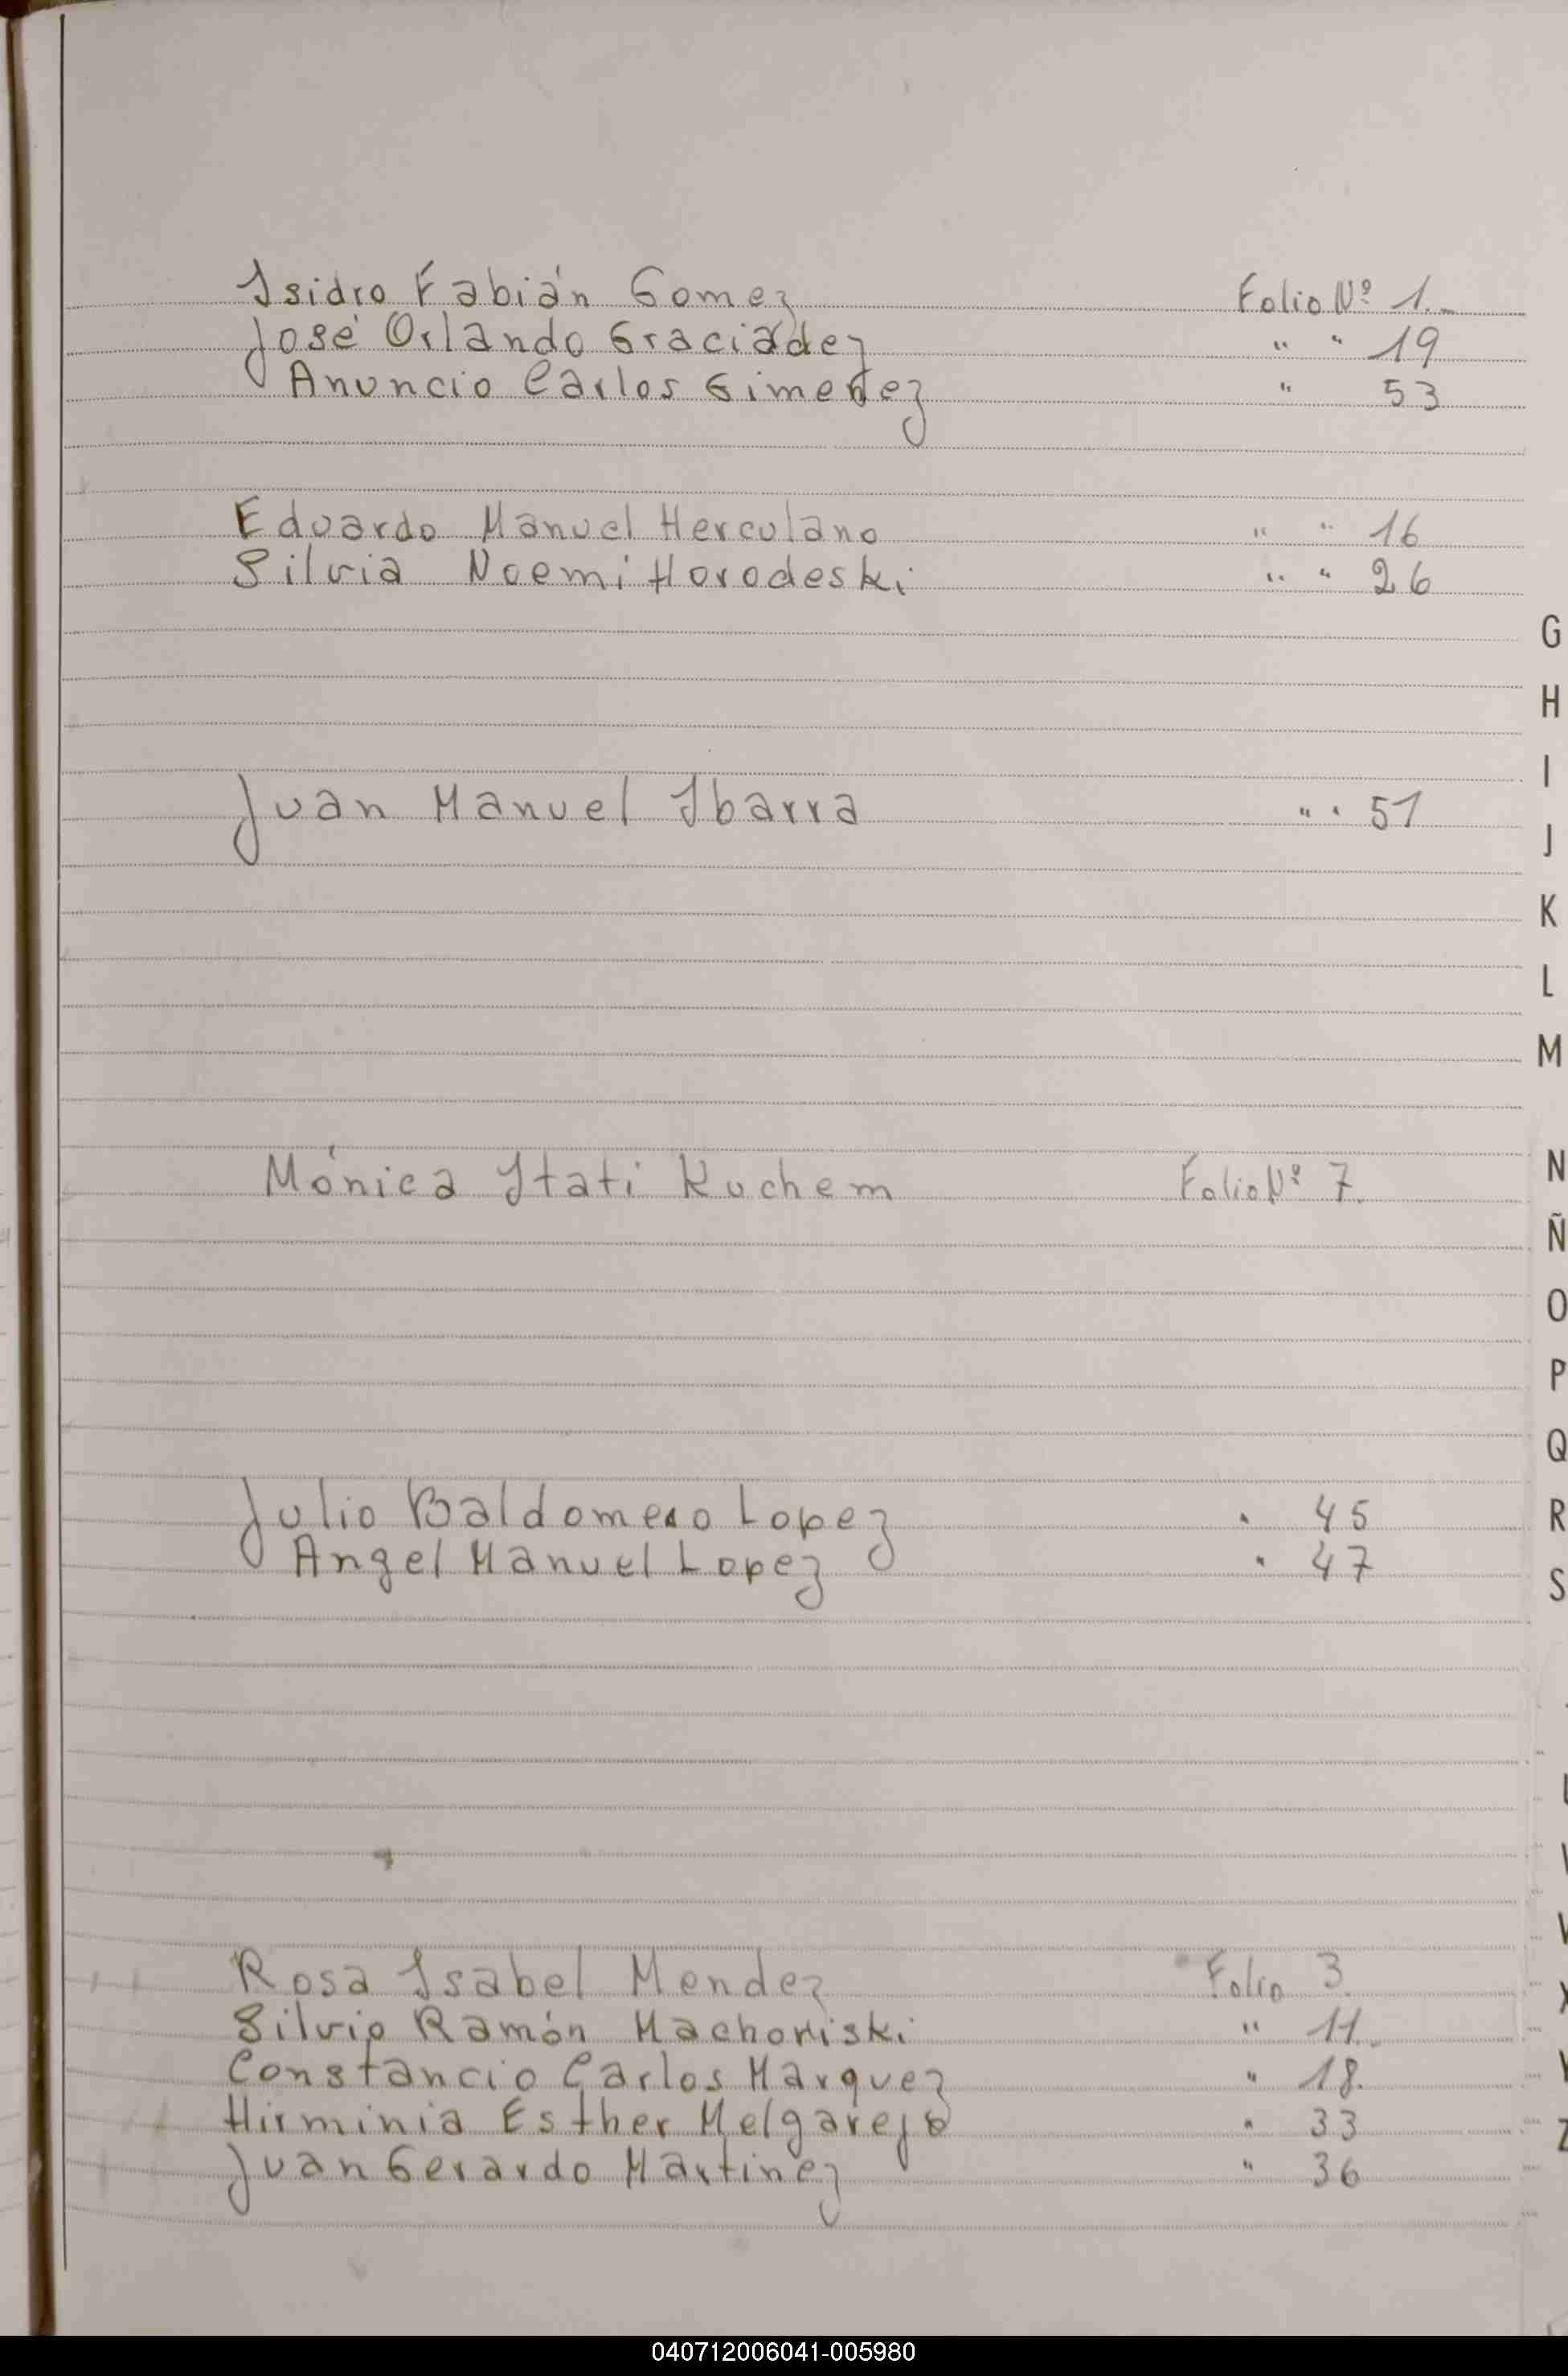 Isidro Fabián Gomez Folio Nº 1.
José Orlando Graciadez " " 19
Anuncio Carlos Gimenez " 53
Eduardo Manuel Herculano " " 16
Silvia Noemi Horodeski " " 26
G
H
I
Juan Manuel Ibarra " " 51
J
K
L
M
Mónica Itati Kuchem Folio Nº 7.
N
Ñ
O
P
Q
Julio Baldomero Lopez " 45
R
Angel Manuel Lopez " 47
S
Rosa Isabel Mendez Folio 3.
Silvio Ramón Machoniski " 11.
Constancio Carlos Marquez " 18.
Hirminia Esther Melgarejo " 33
Juan Gerardo Martinez " 36
040712006041-005980